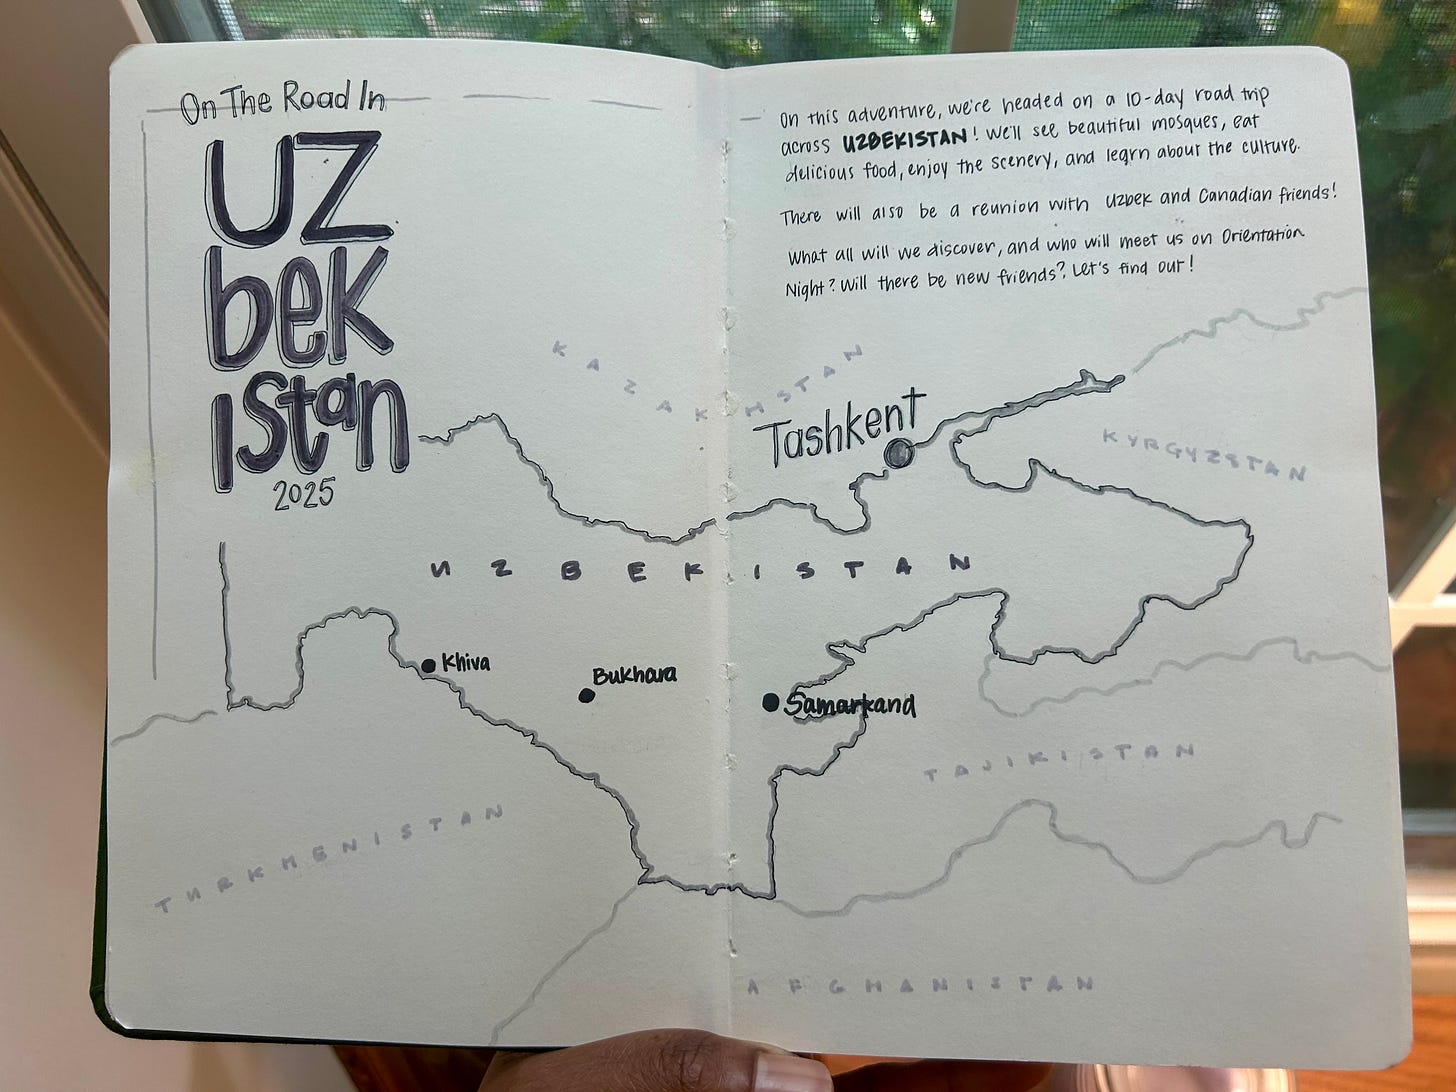 On The Road In
UZ
bek
istan
2025
On this adventure, we're headed on a 10-day road trip
across UZBEKISTAN! We'll see beautiful mosques, eat
delicious food, enjoy the scenery, and learn about the culture.
There will also be a reunion with Uzbek and Canadian friends!
What all will we discover, and who will meet us on Orientation
Night? Will there be new friends? Let's find out!
KAZAKHSTAN
Tashkent
KYRGYZSTAN
UZBEKISTAN
Khiva
Bukhara
Samarkand
TAJIKISTAN
TURKMENISTAN
AFGHANISTAN